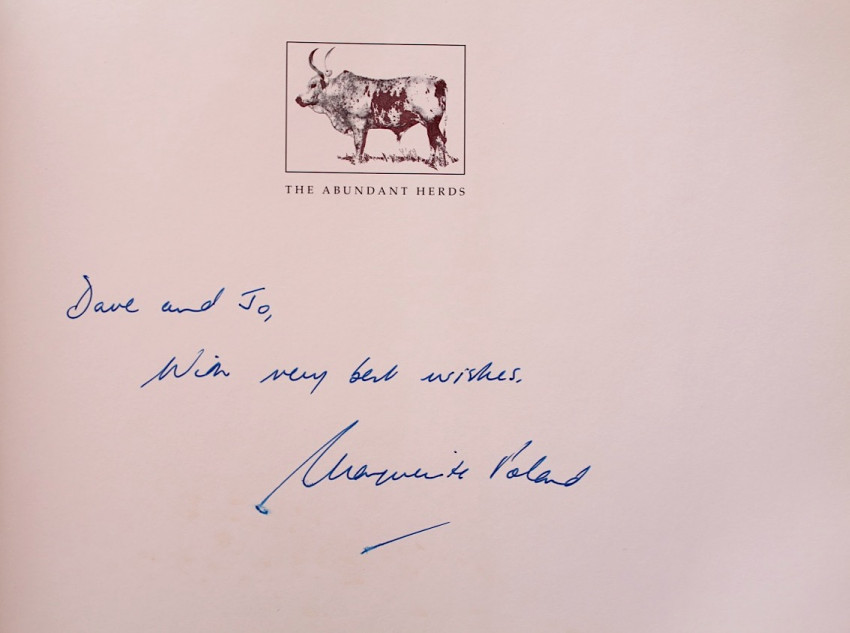 THE ABUNDANT HERDS
Dave and Jo,
With very best wishes.
Marguerite Poland